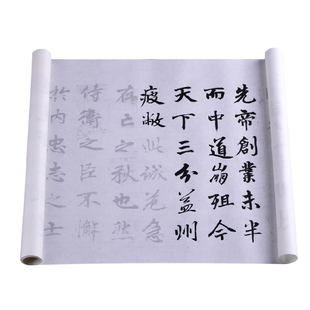 先帝創業未半
而中道崩殂今
天下三分益州
疲敝此誠危急
存亡之秋也然
侍衛之臣不懈
於內忠志之士